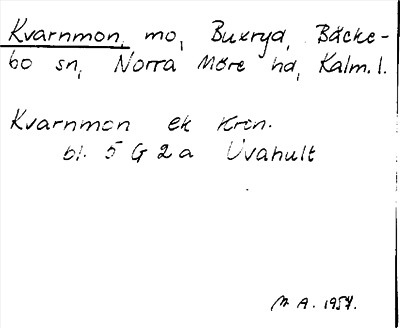 Kvarnmon, mo, Buxryd, Bäcke-
bo sn, Norra Möre hd, Kalm. l.
Kvarnmon ek krtn.
bl. 5 G 2 a Uvahult
A. 1957.